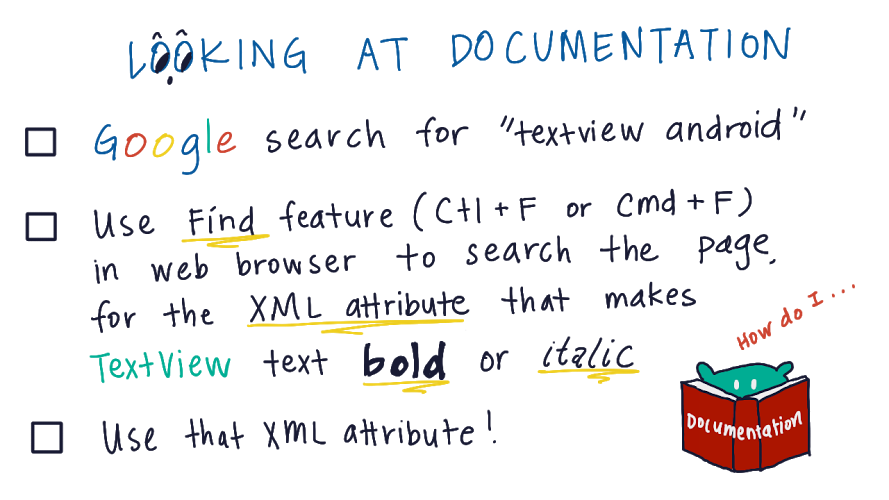 LOOKING AT DOCUMENTATION
Google search for "textview android"
Use Find feature (Ctl + F or Cmd + F)
in web browser to search the page.
for the XML attribute that makes
TextView text bold or italic
Use that XML attribute!
How do I...
Documentation